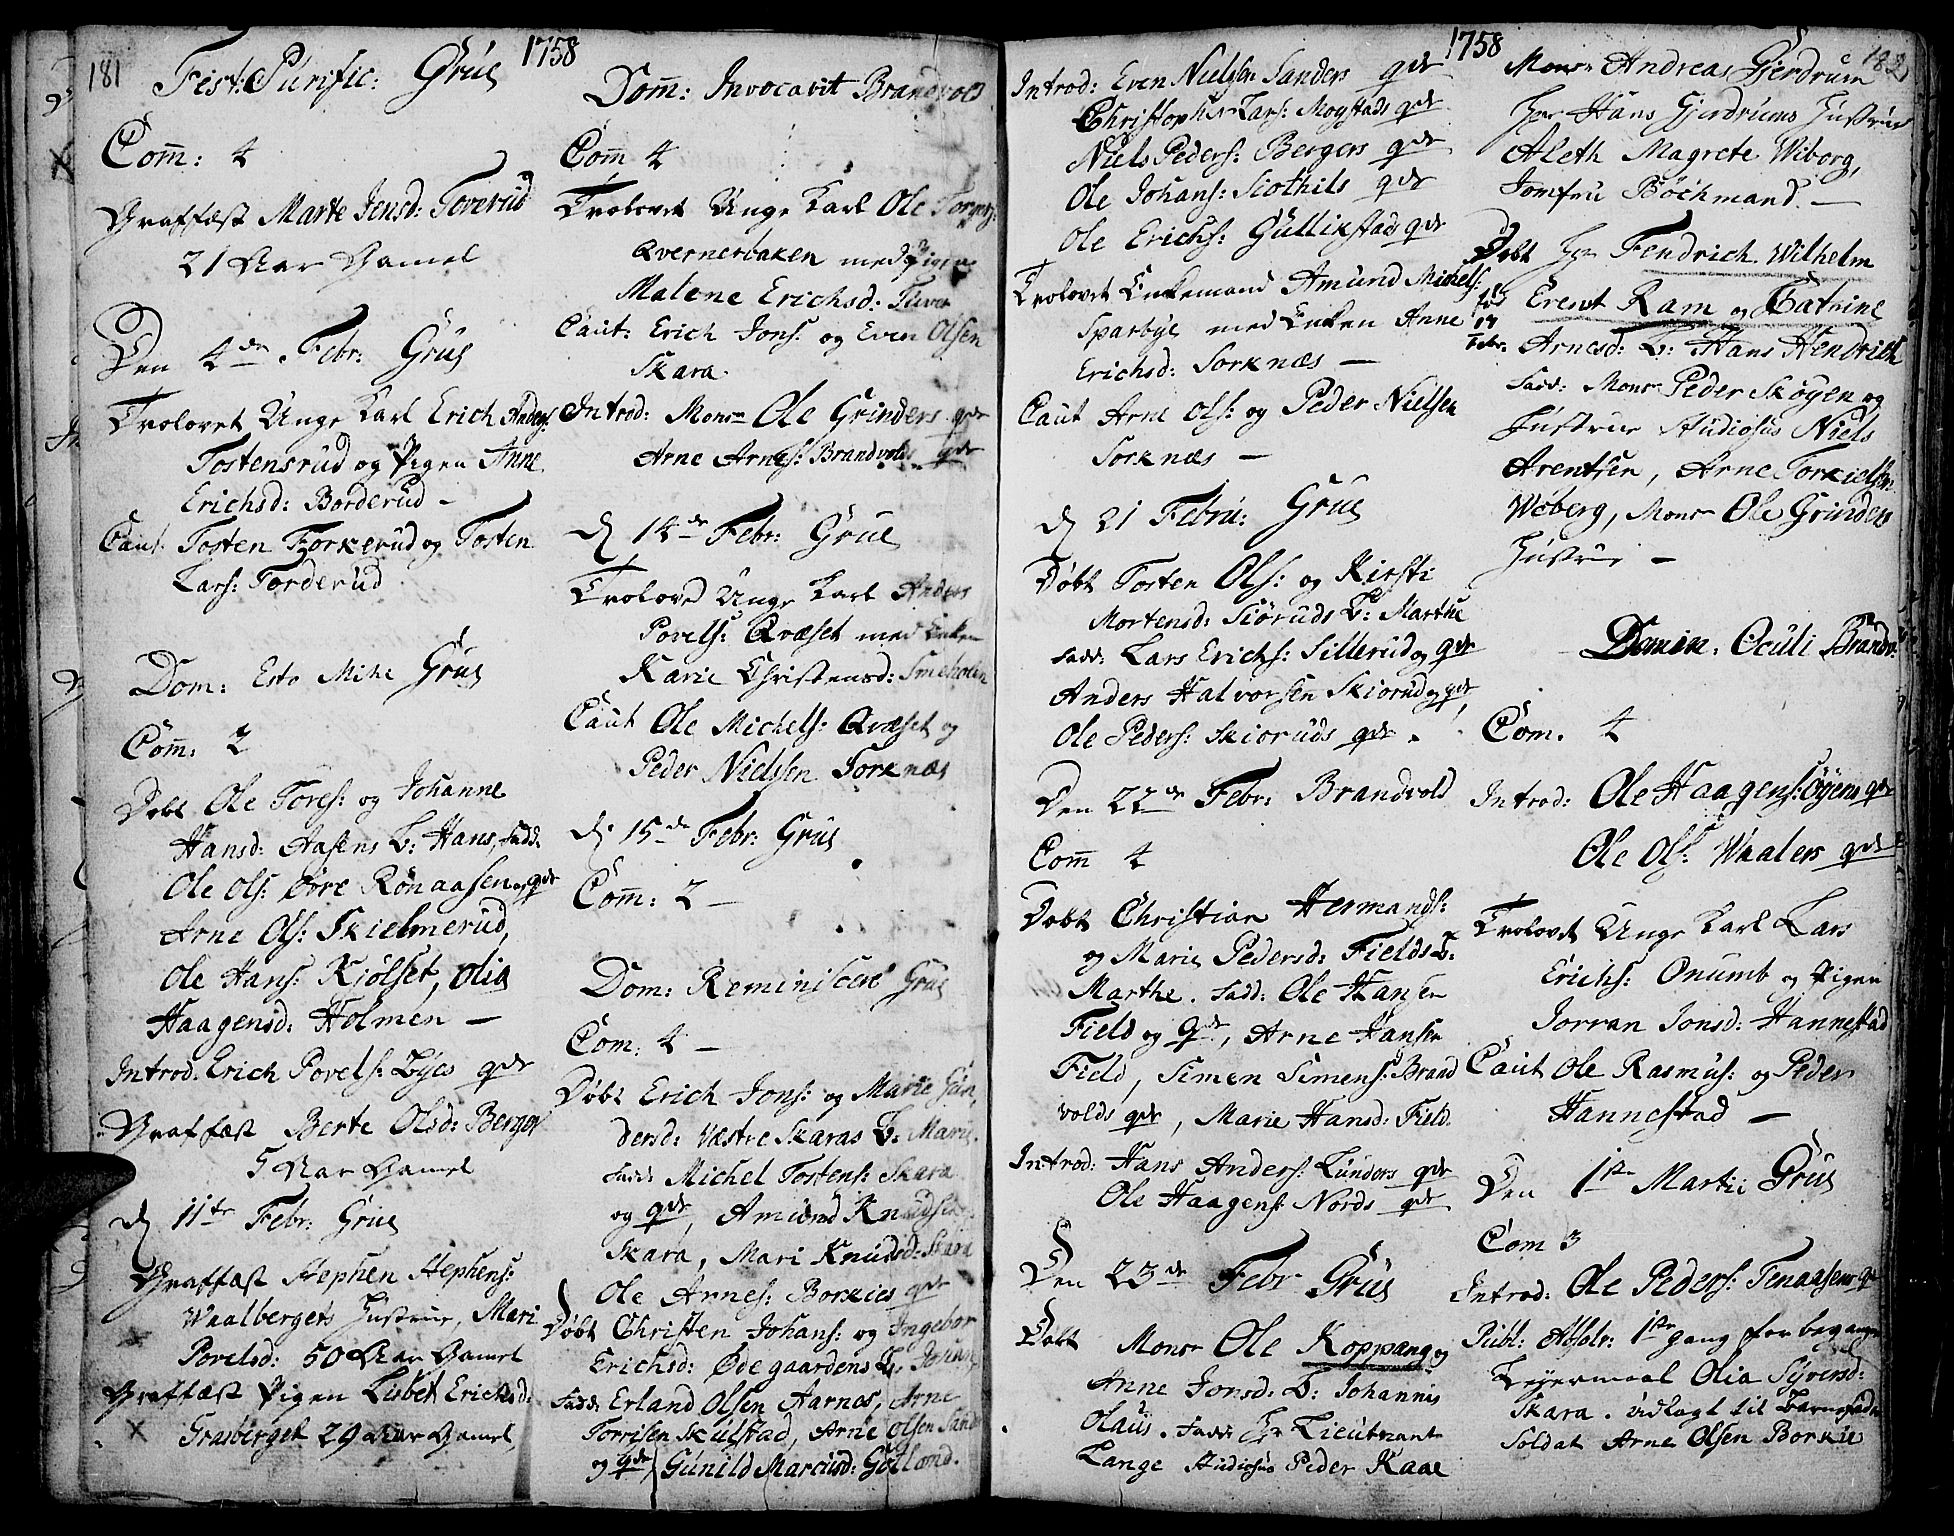 181
1758
Fest: Purific: Grue
Com̄: 4
Graffæst Marte Jensd: Toverud
21 Aar Gamel
Den 4de Febr: Grue
Trolovet Unge Karl Erich Anders:
Tostensrud og Pigen Anne
Erichsd: Borderud –
Caut. Tosten Torkerud og Tosten
Lars: Torderud
Dom: Esto Mihi Grue
Com̄: 2
Døbt Ole Tores: og Johanne
Hansd: Aasens B: Hans, Fadd:
Ole Ols: Øvre Rønaasen og qdr
Arne Ols: Skielmerud,
Ole Hans: Kjølset, Olia
Haagensd: Holmen –
Introd. Erich Povels: Byes qdr
Graffæst Berte Olsd: Berger
5 Aar Gamel
D 11te Febr: Grue
Graffæst Stephen Stephens:
Waalbergets Hustrue, Mari
Povelsd: 50 Aar Gamel
Graffæst Pigen Lisbet Erichsd:
Grasberget 29 Aar Gamel
Dom̄: Invocavit Brandvold
Com̄ 4
Trolovet Unge Karl Ole Torgers:
Qvernerbaken med Pigen
Malene Erichsd:
Caut: Erich Jons: og Even Olsen
Skara.
Introd: Monsr Ole Grinders qdr
Arne Arnes: Brandvolds qdr
D 14de Febr: Grue
Trolovet Unge Karl Anders
Povels: Qvæset med Enken
Karie Christensd: Smeholen
Caut Ole Michels: Qvæset og
Peder Nielssen Sorknæs
D. 15de Febr: Grue
Com̄: 2 –
Dom: Reminiscere Grue
Com: 4 –
Døbt Erich Jons: og Marie Gun
dersd: Væstre Skaras B: Marie.
Fadd: Michel Tostens: Skara
og qdr, Amund Knudsen
Skara, Mari Knudsd: Skara
Ole Arnes: Borkies qdr
Døbt Christen Johans: og Ingebor
Erichsd: Ødegaardens B: Johan
Fadd: Erland Olsen Aarnæs, Arne
Torrisen Skulstad, Arne Olsen Sand
og qdr Gunild Marcusd: Gotland.
1758
182
Introd: Even Nielsen Sanders qdr
Christopher Lars: Mogstads qdr
Niels Peders: Bergers qdr
Ole Johans: Slothils qdr
Ole Erichs: Gullikstads qdr
Trolovet Enkemand Amund Michels:
Sparbye med Enken Anne
Erichsd: Sorknæs –
Caut Arne Ols: og Peder Nielsen
Sorknæs –
D 21 Febru: Grue
Døbt Tosten Ols: og Kirsti
Mortensd: Skioruds B: Marthe
Fadd: Lars Erichs: Sillerud og qdr
Anders Halvorsen Skiorud og qdr,
Ole Peders: Skioruds qdr.
Den 22de Febr: Brandvold
Com̄ 4
Døbt Christian Hermands:
og Marie Pedersd: Fields B:
Marthe. Fadd: Ole Hansen
Field og qdr, Arne Hansen
Field, Simen Simens: Brand
volds qdr, Marie Hansd: Field.
Introd: Hans Anders: Lunders qdr
Ole Haagens: Nords qdr
Den 23de Febr Grue
Døbt Monsr Ole Koppang og
Anne Jonsd: B: Johannes
Olaus. Fadd: Hr Lieutnant
Lange Studiosus Peder Kaae
Monsr Andreas Gjerdrum
Hr Hans Gjerdrums Hustrue
Aleth Magrete Wiborg,
Jomfru Bøchmand. –
Døbt Hr Fendrich Wilhelm
Ernst Ram og Catrine
fød
17
Febr.
Arnesd: B: Hans Hendrich
Fadd: Monsr Peder Skøyen og
Hustrue Studiosus Niels
Arentsen, Arne Torkielsen
Woberg, Monsr Ole Grinders
Hustrue –
Domin. Oculi Brandv:
Com. 4
Introd: Ole Haagens: Øyens qdr
Ole Ols: Waalers qdr
Trolovet Unge Karl Lars
Erichs: Onumb og Pigen
Jorran Jonsd: Hannestad
Caut Ole Rasmus: og Peder
Hannestad –
Den 1ste Martii Grue
Com 3
Introd: Ole Peders: Tenaasens qdr
Publ: Absolv: 1ste gang for begangen
Leyermaal Olia Syversd:
Skara. Udlagt til Barnefader
Soldat Arne Olsen Borkie